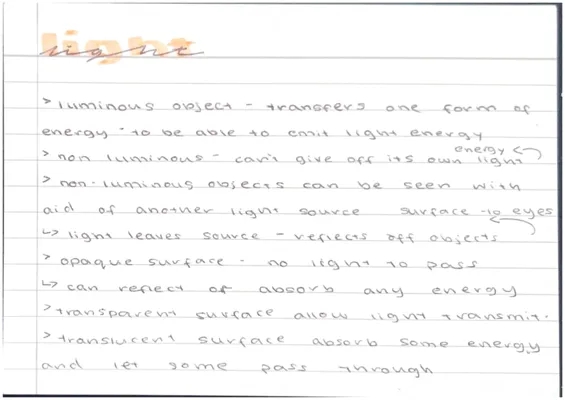 light
> luminous object - transfers one form of
energy - to be able to emit light energy
energy
> non luminous - can't give off its own light
> non-luminous objects can be seen with
aid of another light source surface to eyes
↳ light leaves source - reflects off objects
> opaque surface - no light to pass
↳ can reflect of absorb any energy
> transparent surface allow light transmit.
> translucent surface absorb some energy
and let some pass through